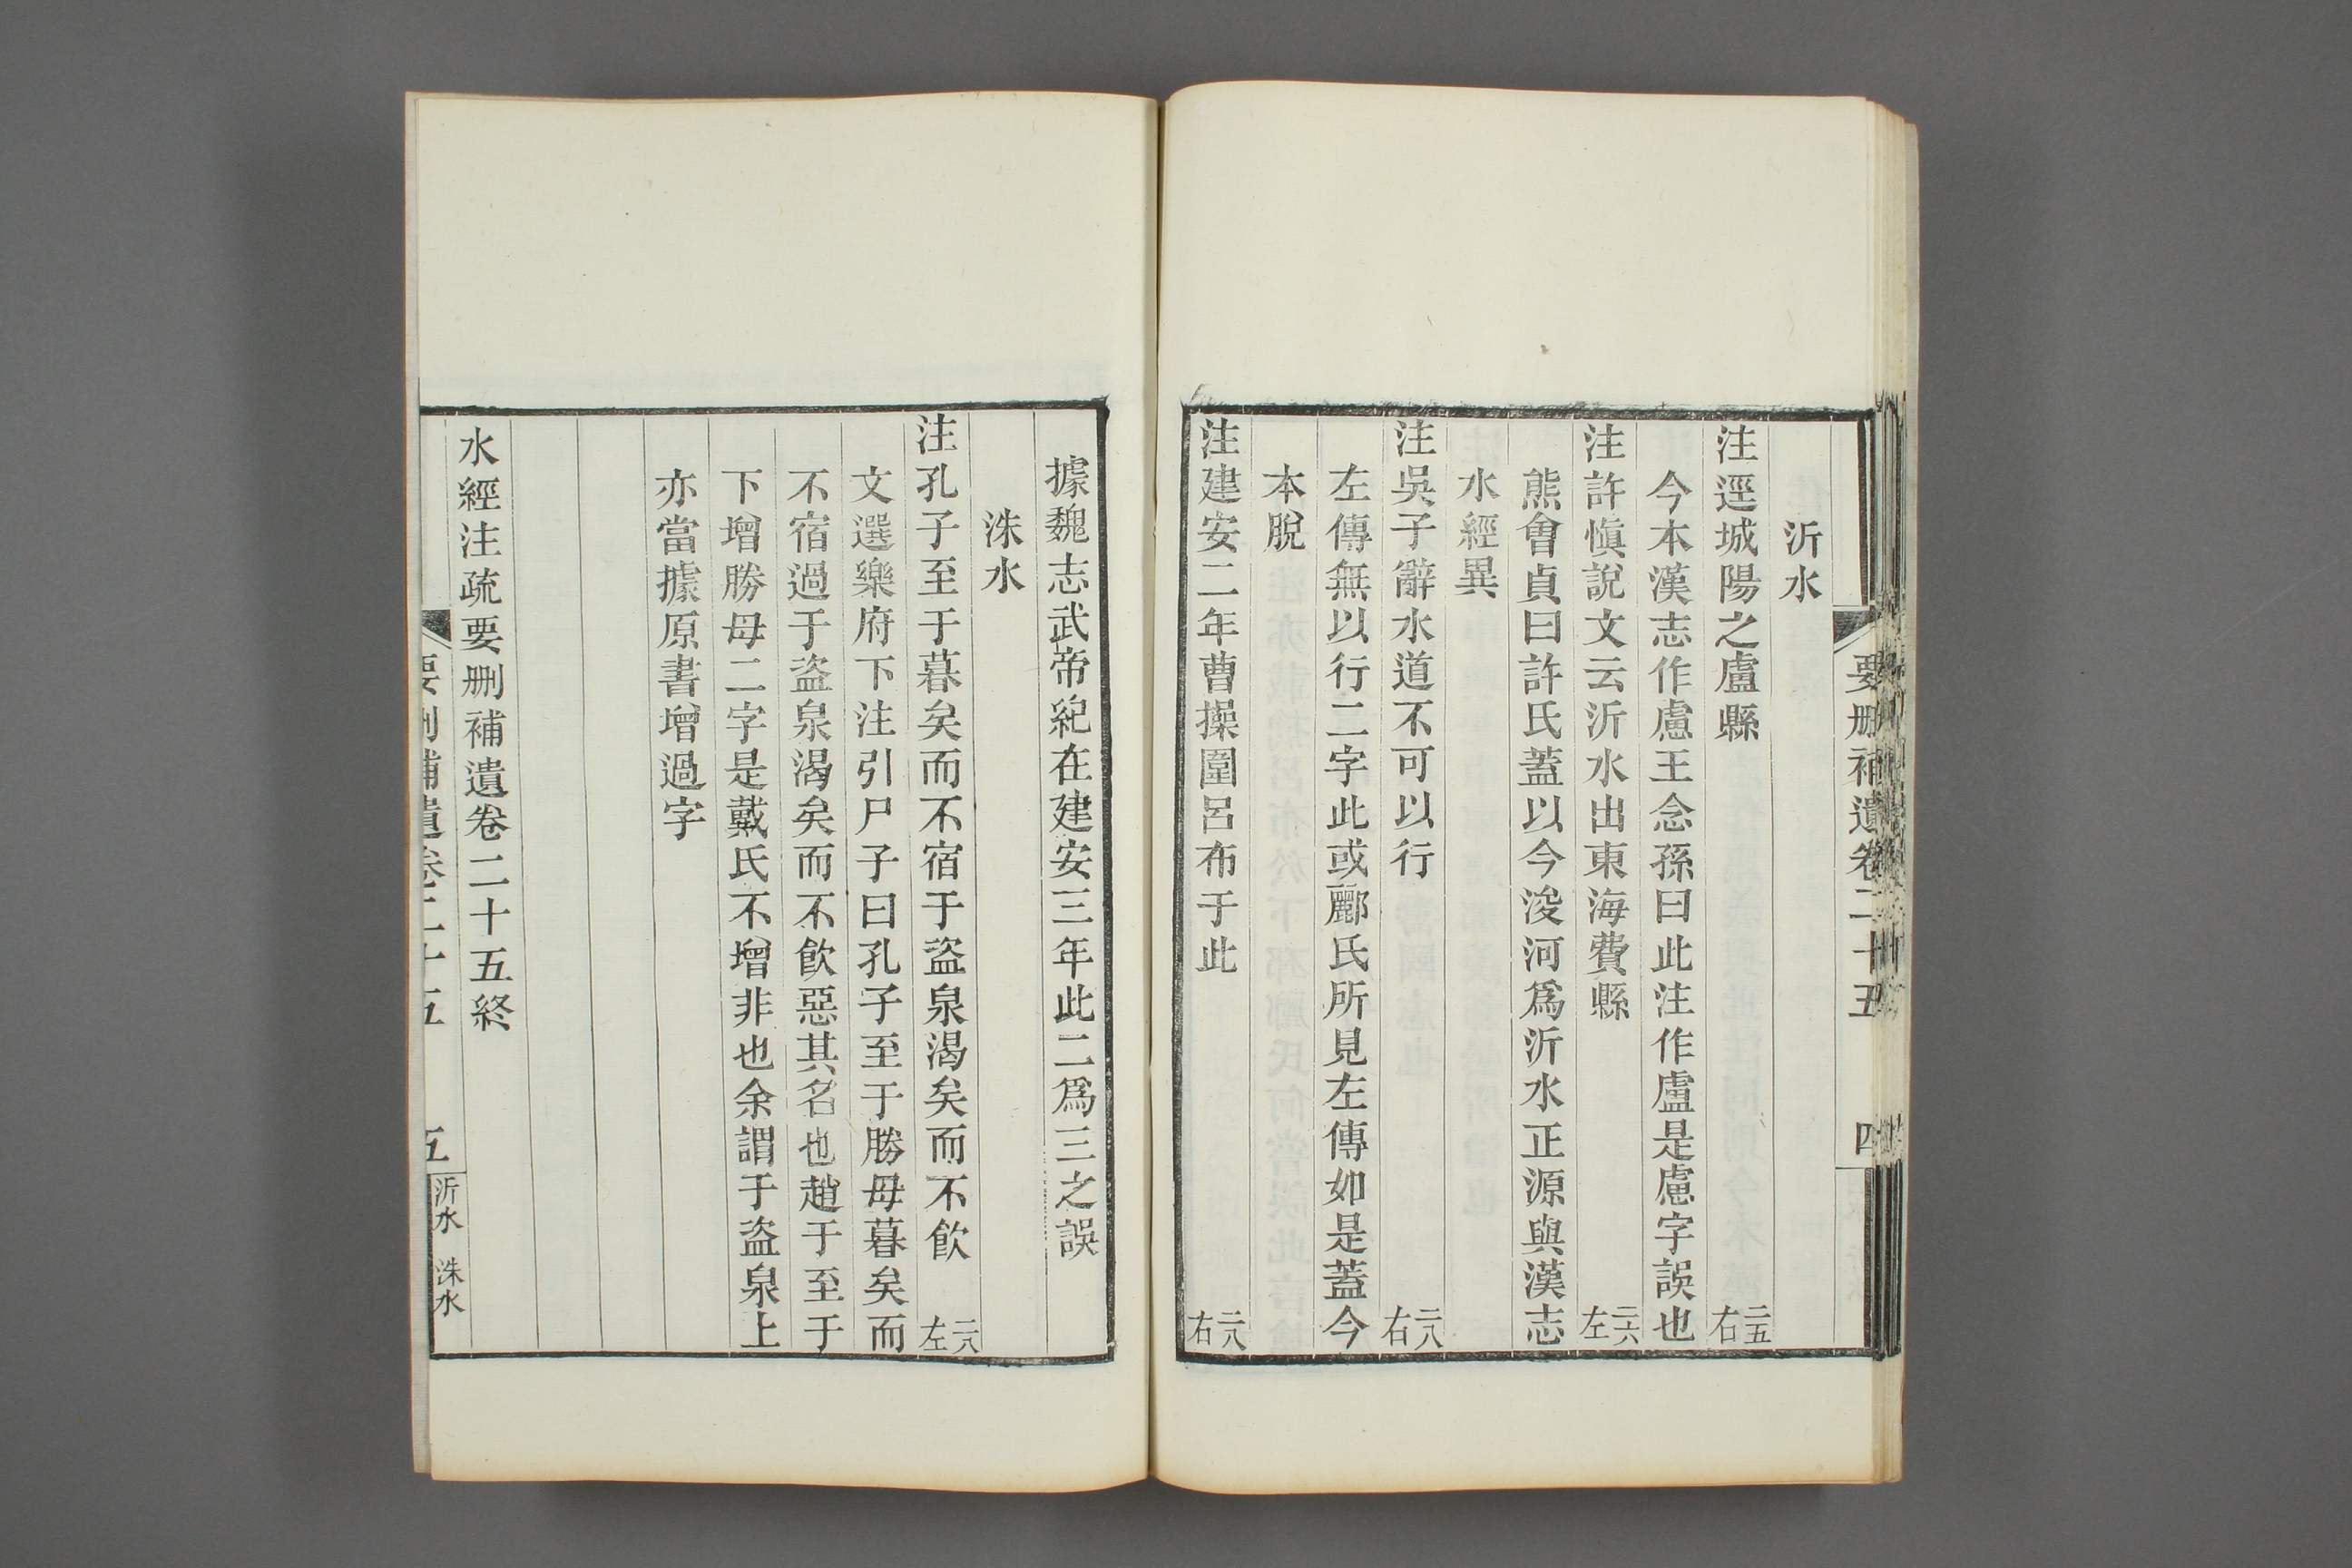 要刪補遺卷二十五 四
沂水
注逕城陽之盧縣 二五右
今本漢志作慮王念孫曰此注作盧是慮字誤也
注許愼說文云沂水出東海費縣 二六左
熊會貞曰許氏蓋以今浚河爲沂水正源與漢志
水經異
注吳子辭水道不可以行 二八右
左傳無以行二字此或酈氏所見左傳如是蓋今
本脫
注建安二年曹操圍呂布于此 二八右
據魏志武帝紀在建安三年此二爲三之誤
洙水
注孔子至于暮矣而不宿于盜泉渴矣而不飮 二八左
文選樂府下注引尸子曰孔子至于勝母暮矣而
不宿過于盜泉渴矣而不飮惡其名也趙于至于
下增勝母二字是戴氏不增非也余謂于盜泉上
亦當據原書增過字
水經注疏要刪補遺卷二十五終
要刪補遺卷二十五 五 沂水 洙水